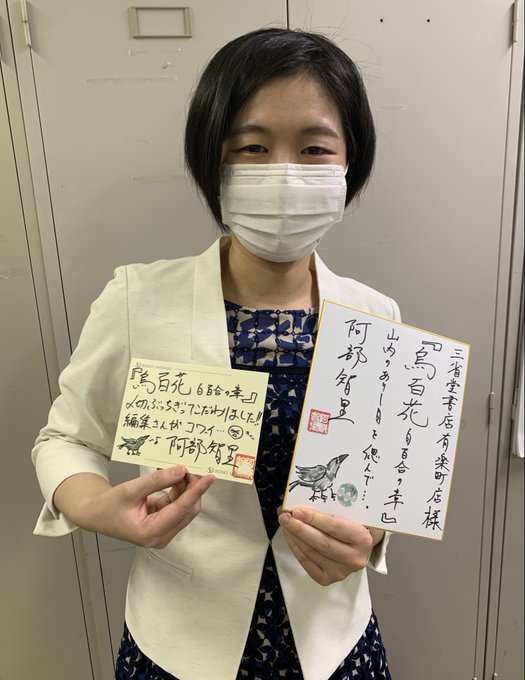 『烏百花 白百合の章』
〆切ぶっちぎってこだわりました!!
編集さんがコワイ…
阿部智里
三省堂書店有楽町店様
『烏百花 白百合の章』
山内のありし日を偲んで…。
阿部智里